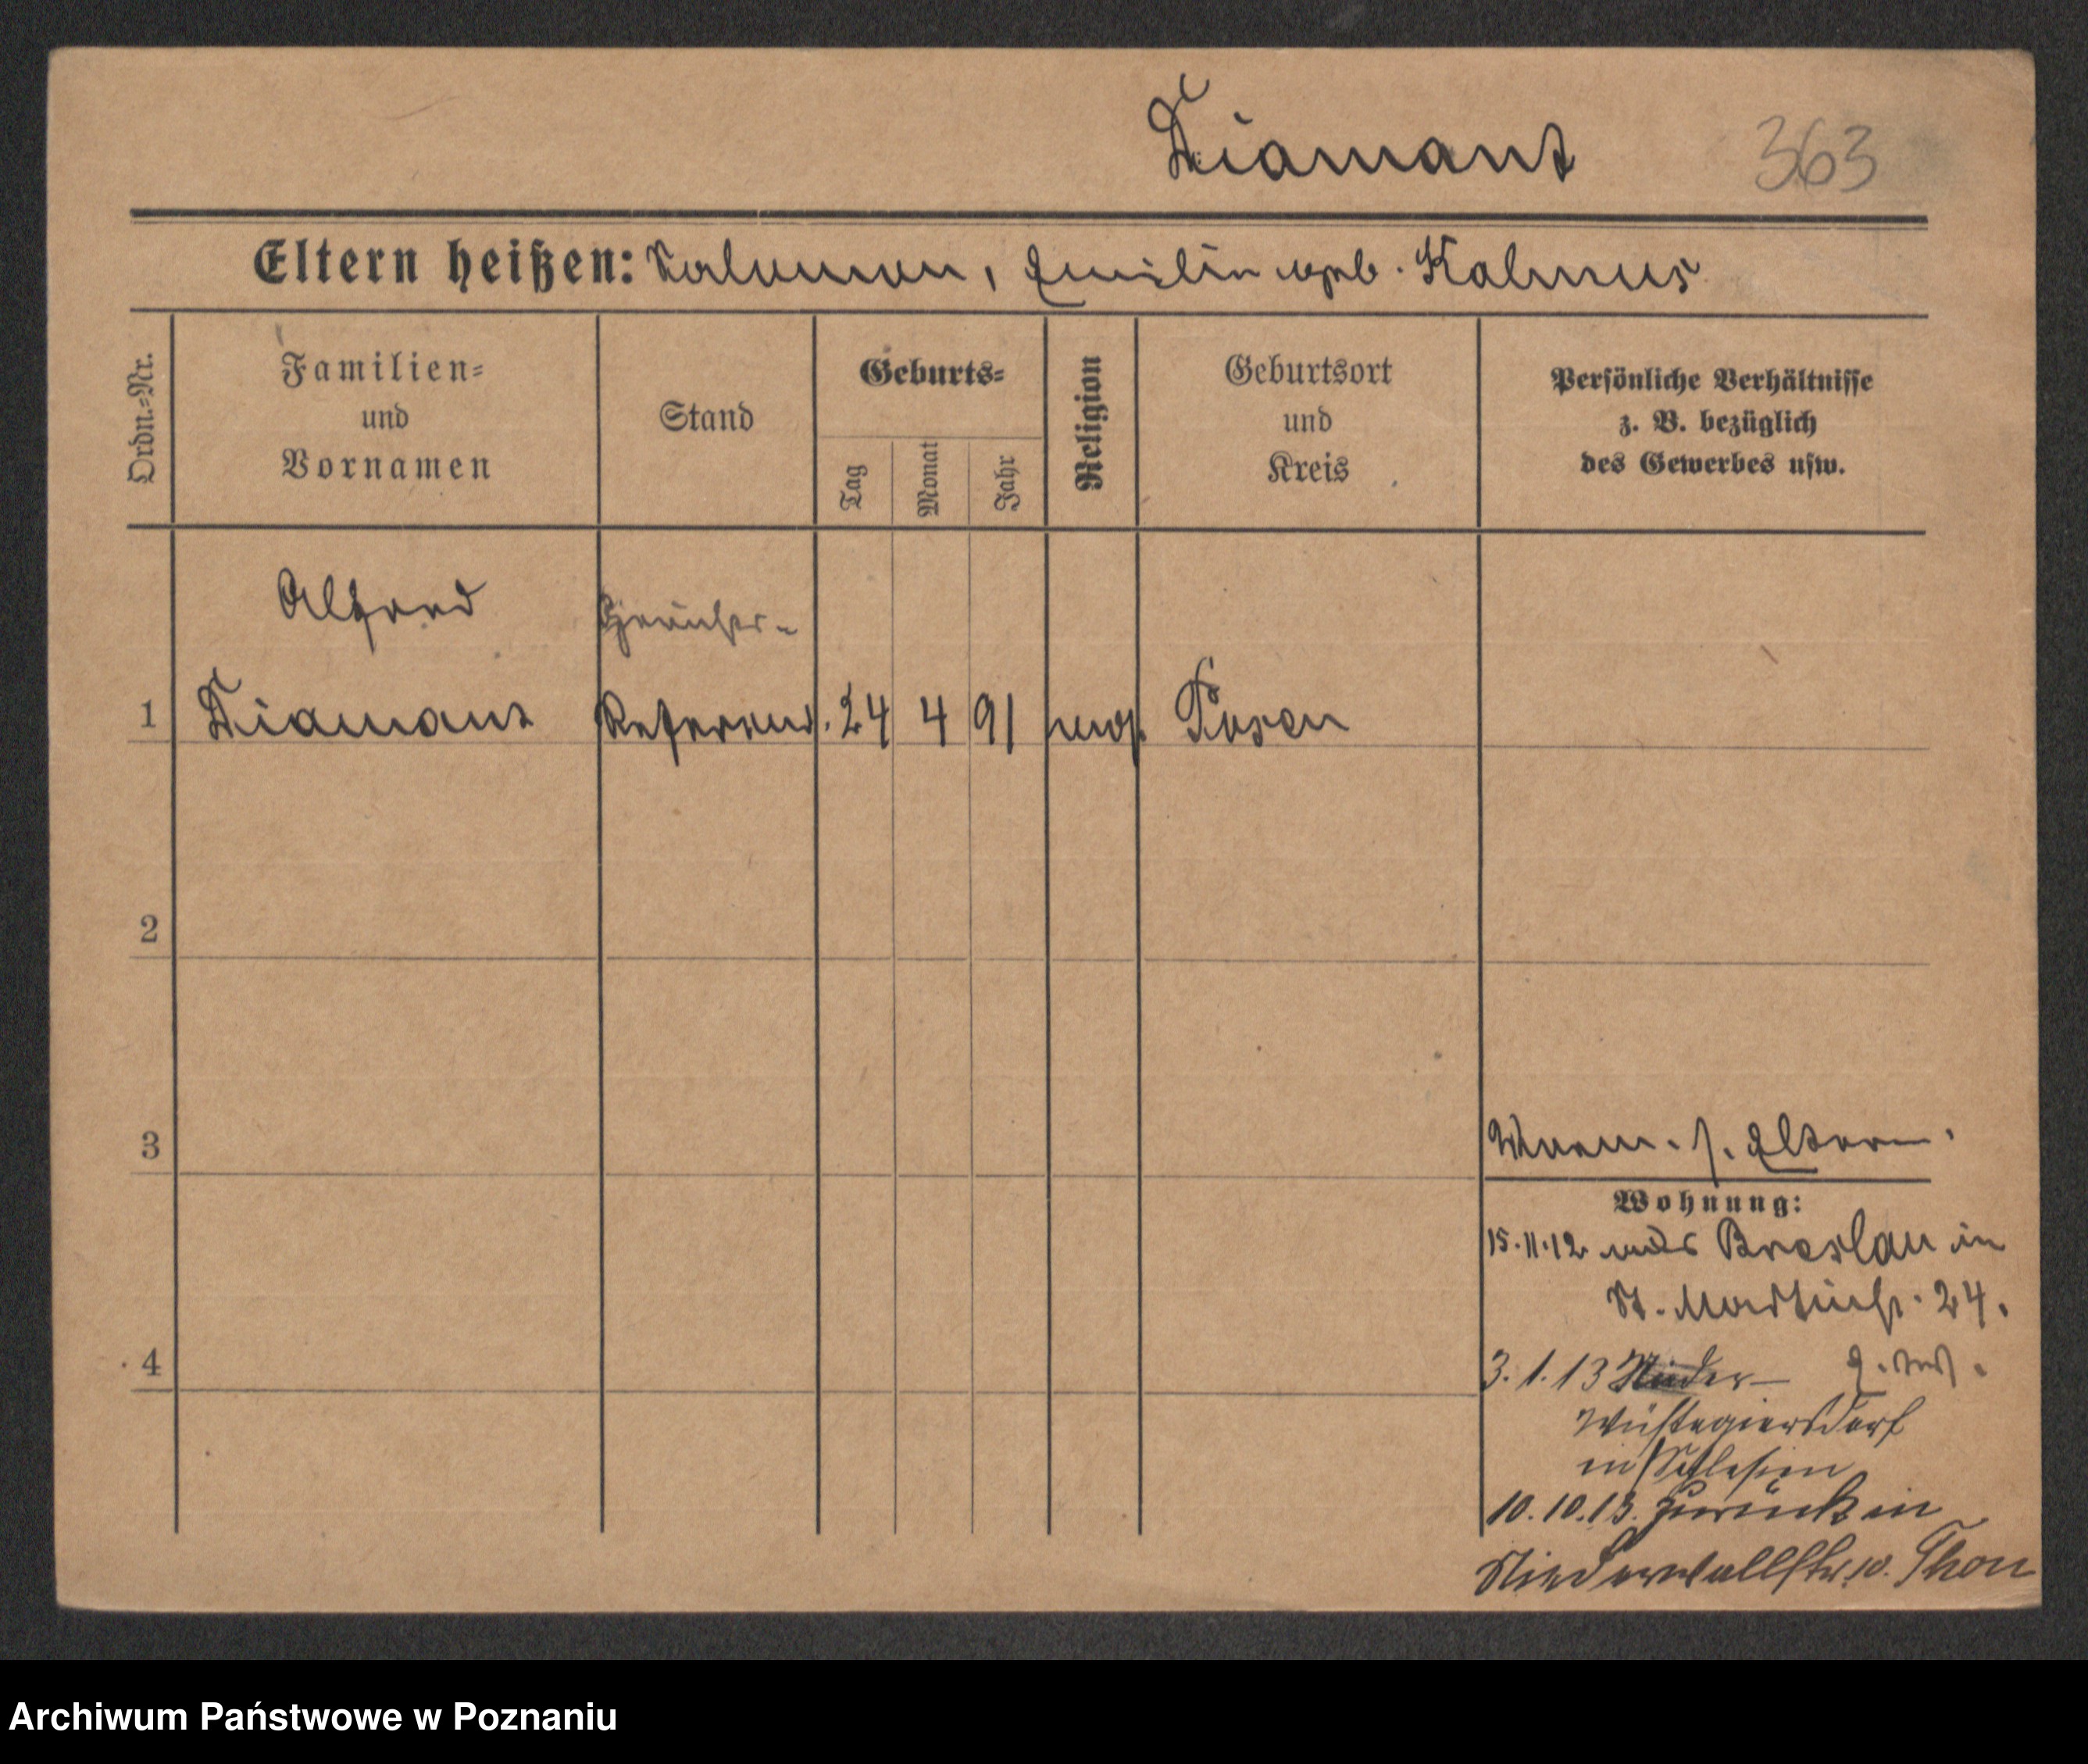 Diamant 363
Eltern heißen: Salomon, Emilie geb. Kalmus
Ordn.-Nr.
Familien-
und
Vornamen
Stand
Geburts-
Tag
Monat
Jahr
Religion
Geburtsort
und
Kreis
Persönliche Verhältnisse
z. B. bezüglich
des Gewerbes usw.
Alfred
1 Diamant Referend. 24 4 91 mos. Posen
2
3
4
s. Eltern.
Wohnung:
15.11.12 aus Breslau in
St. Martinstr. 24.
3.1.13 Nieder-
Wüstegiersdorf
in Schlesien
10.10.13. Zurück in
Niederwallstr. 10. Thon
Archiwum Państwowe w Poznaniu